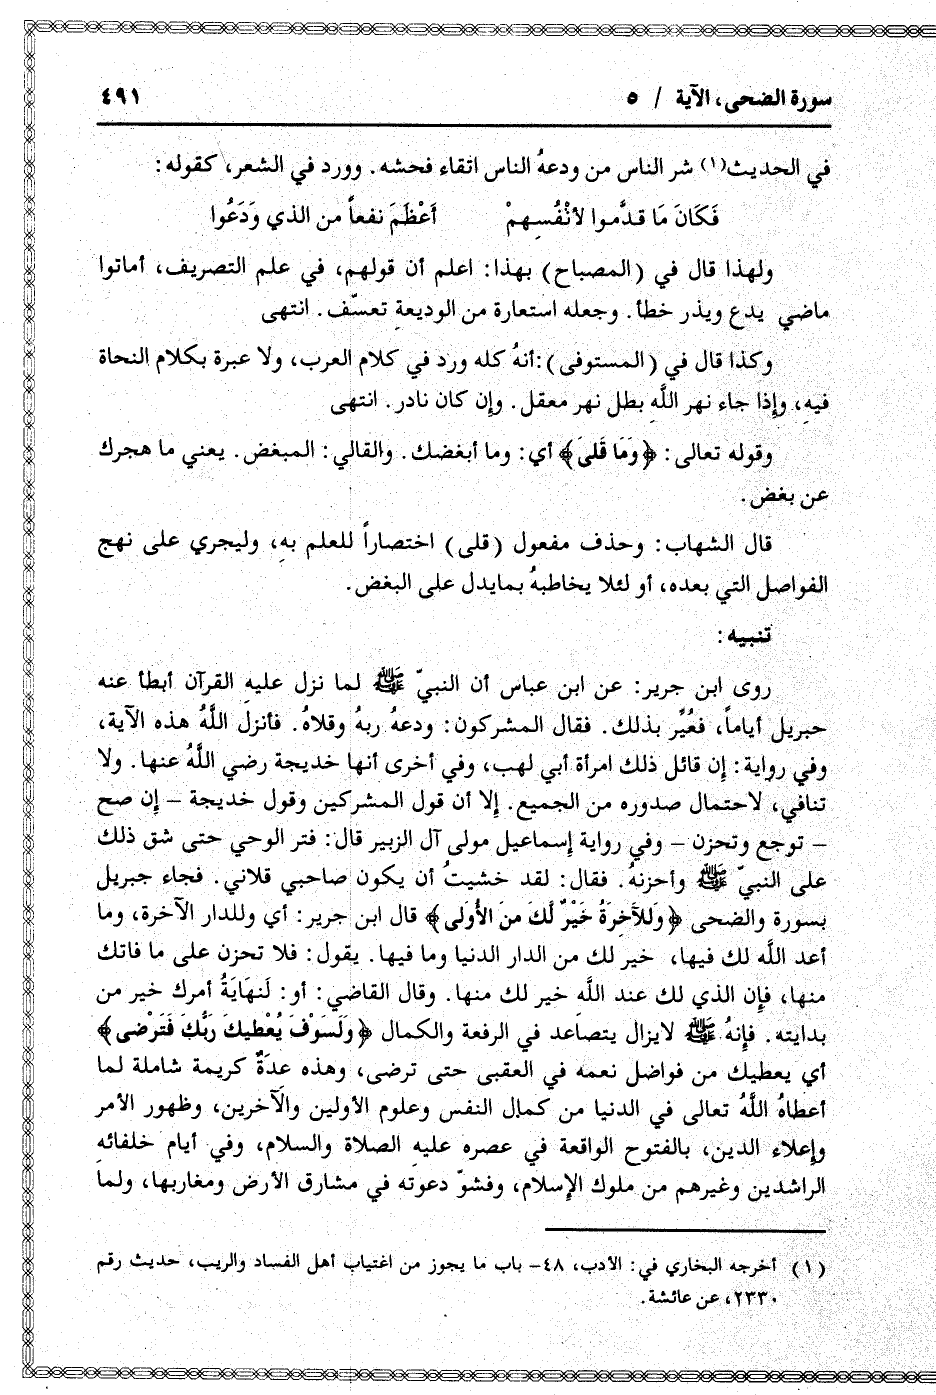 سورة الضحى، الآية / ٥
٤٩١
في الحديث(١) شر الناس من ودعهُ الناس اتقاء فحشه. وورد في الشعر، كقوله:
فَكَانَ مَا قدَّموا لأنْفُسِهِمْ أَعْظَمَ نفعاً من الذي وَدَعُوا
ولهذا قال في (المصباح) بهذا: اعلم أن قولهم، في علم التصريف، أماتوا
ماضي يدع ويذر خطأ. وجعله استعارة من الوديعةِ تعسّف. انتهى
وكذا قال في (المستوفى):أنهُ كله ورد في كلام العرب، ولا عبرة بكلام النحاة
فيهِ، وإذا جاء نهر اللَّه بطل نهر معقل. وإن كان نادر. انتهى
وقوله تعالى: ﴿وَمَا قَلىَ﴾ أي: وما أبغضك. والقالي: المبغض. يعني ما هجرك
عن بغض.
قال الشهاب: وحذف مفعول (قلى) اختصاراً للعلم بهِ، وليجري على نهج
الفواصل التي بعده، أو لئلا يخاطبهُ بمايدل على البغض.
تنبيه:
روى ابن جرير: عن ابن عباس أن النبيّ ﷺ لما نزل عليهِ القرآن أبطأ عنه
جبريل أياماً، فعُيِّر بذلك. فقال المشركون: ودعهُ ربهُ وقلاهُ. فأنزل اللَّهُ هذه الآية،
وفي رواية: إن قائل ذلك امرأة أبي لهب، وفي أخرى أنها خديجة رضي اللَّهُ عنها. ولا
تنافي، لاحتمال صدوره من الجميع. إلا أن قول المشركين وقول خديجة – إن صح
– توجع وتحزن – وفي رواية إسماعيل مولى آل الزبير قال: فتر الوحي حتى شق ذلك
على النبيّ ﷺ وأحزنهُ. فقال: لقد خشيتُ أن يكون صاحبي قلاني. فجاء جبريل
بسورة والضحى ﴿وَللآخِرَةُ خَيْرٌ لَّكَ مِنَ الأُوَلى﴾ قال ابن جرير: أي وللدار الآخرة، وما
أعد اللَّه لك فيها، خير لك من الدار الدنيا وما فيها. يقول: فلا تحزن على ما فاتك
منها، فإن الذي لك عند اللَّه خير لك منها. وقال القاضي: أو: لَنهَايَةُ أمرك خير من
بدايته. فإنهُ ﷺ لايزال يتصاعد في الرفعة والكمال ﴿وَلَسَوْفَ يُعْطيِكَ رَبُّكَ فَتَرْضى﴾
أي يعطيك من فواضل نعمه في العقبى حتى ترضى، وهذه عدَةٌ كريمة شاملة لما
أعطاهُ اللَّهُ تعالى في الدنيا من كمال النفس وعلوم الأولين والآخرين، وظهور الأمر
وإعلاء الدين، بالفتوح الواقعة في عصره عليهِ الصلاة والسلام، وفي أيام خلفائه
الراشدين وغيرهم من ملوك الإسلام، وفشوّ دعوته في مشارق الأرض ومغاربها، ولما
(١) أخرجه البخاري في: الأدب، ٤٨– باب ما يجوز من اغتياب أهل الفساد والريب، حديث رقم
٢٣٣٠، عن عائشة.